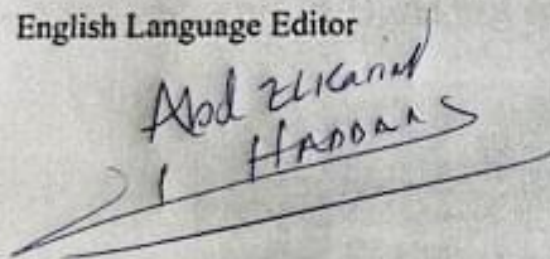 English Language Editor
Abd Elkarim
HADDAR